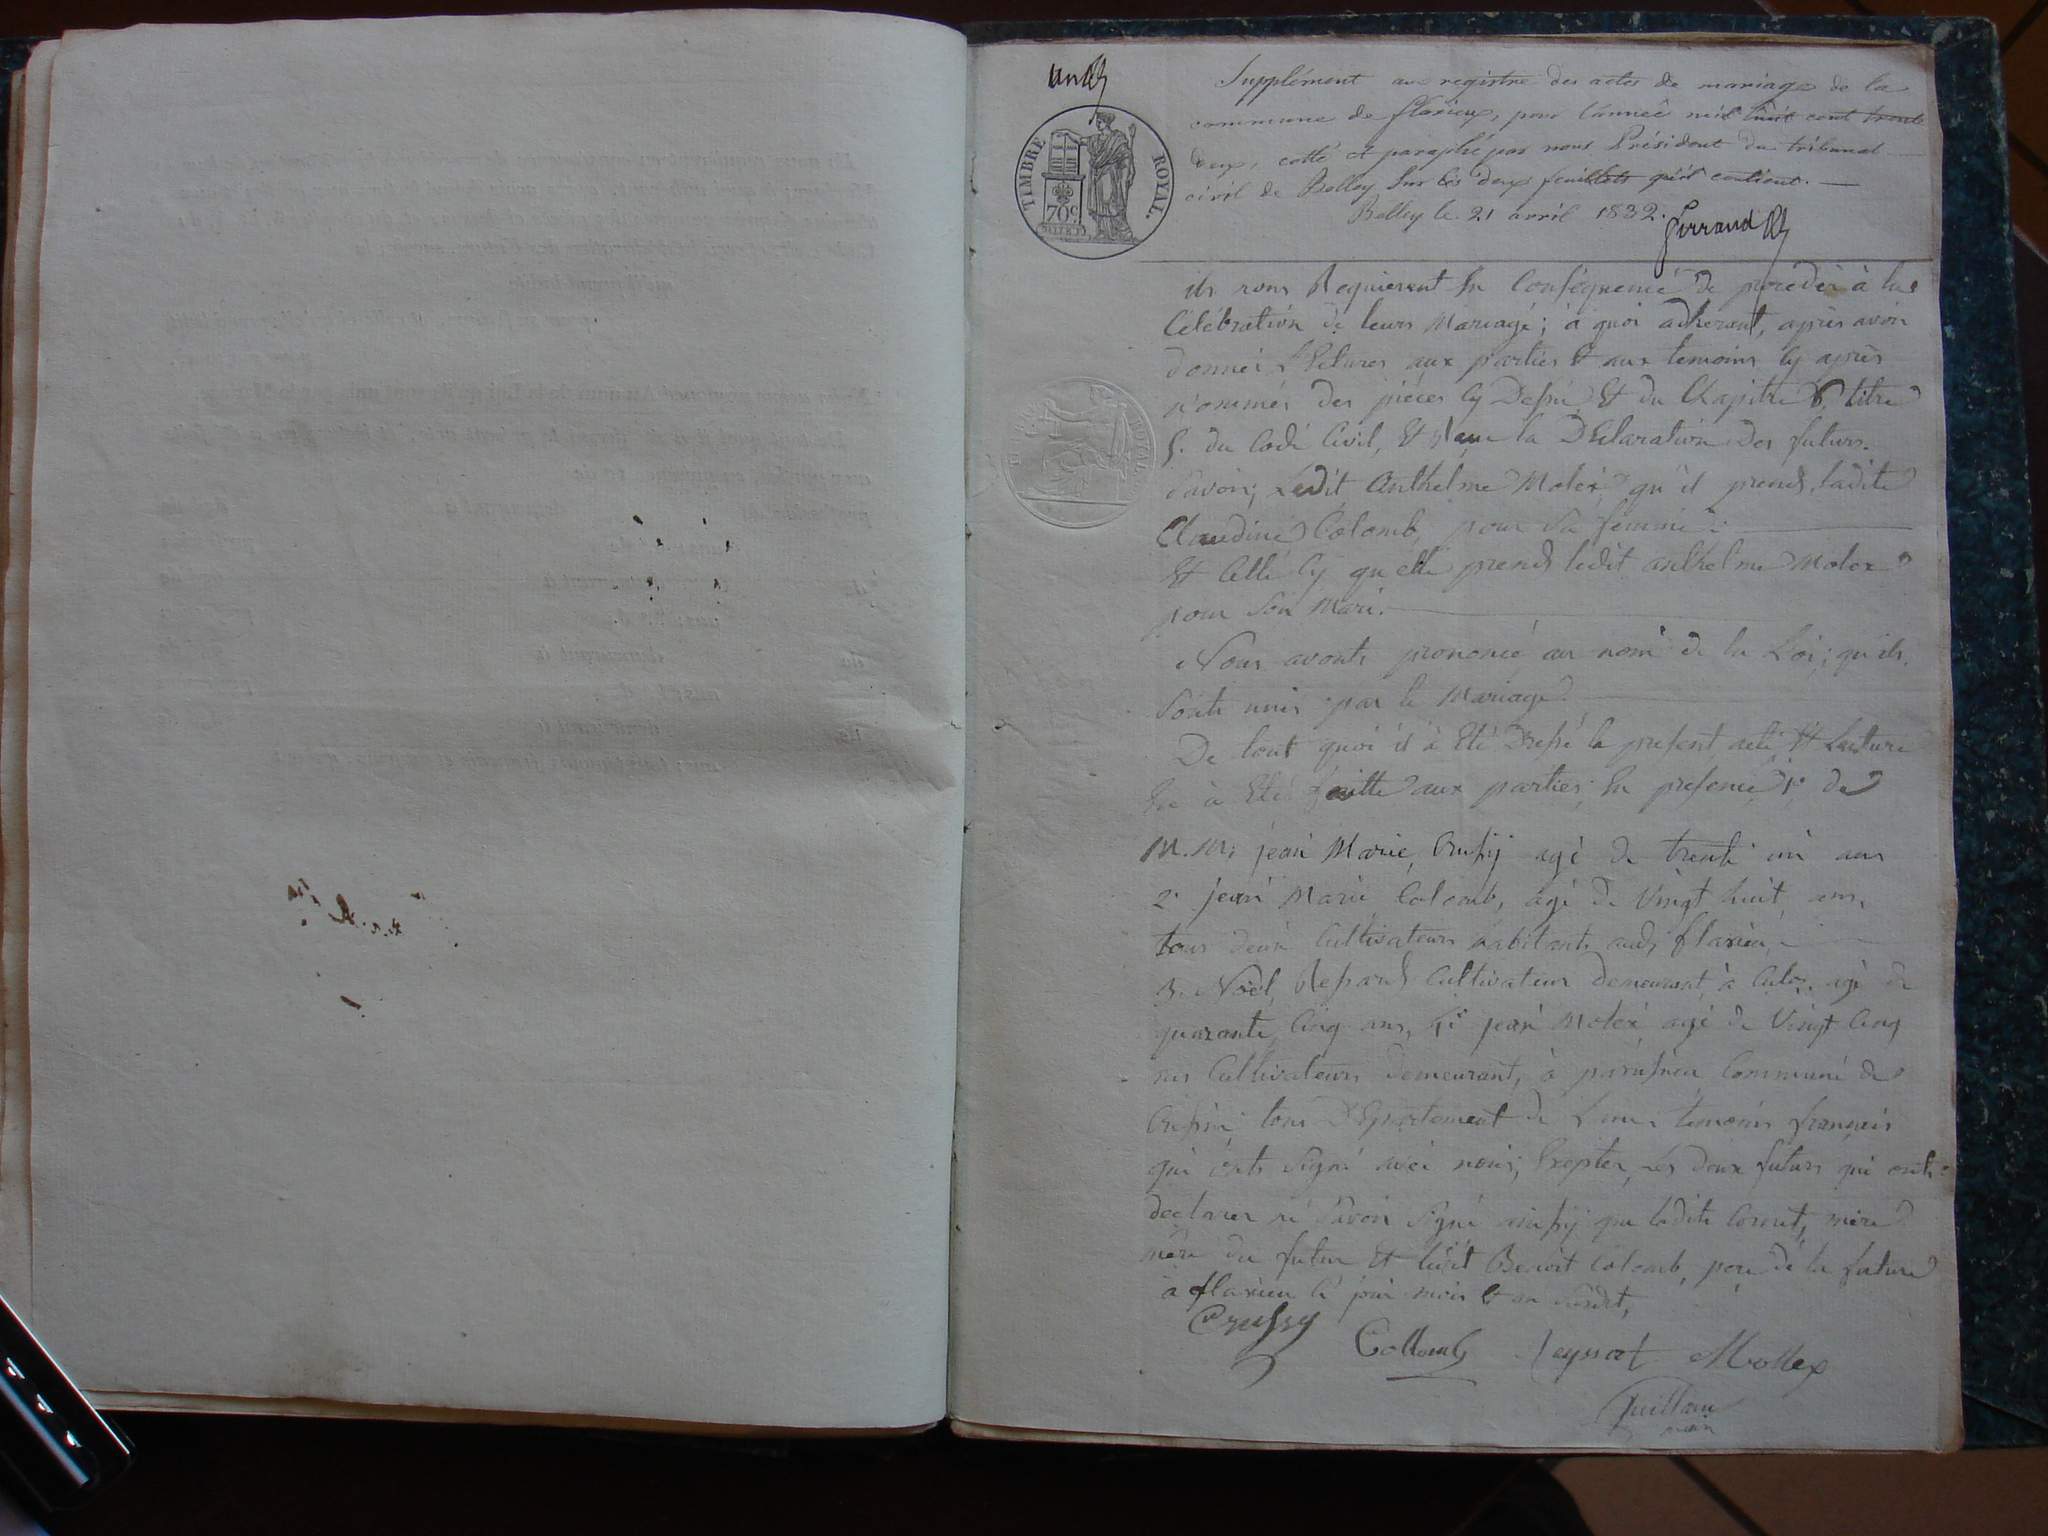 un
TIMBRE ROYAL.
70c
Supplément au registre des actes de mariage de la
commune de flaxieu, pour l'année mil huit cent trente
deux, cotté et paraphé par nous Président du tribunal
civil de Belley sur les deux feuillets qu'il contient. —
Belley le 21 avril 1832.
ils nous Requierent En Conséquence de proceder à la
Célébration de leurs Mariage; a quoi adherant, après avoir
donnés aux parties et aux temoins cy après
nommés des pièces cy Dessus Et du Chapitre 6, titre
5. du Code Civil, Et la Déclaration des futurs.
Savoir; Ledit Anthelme Molex, qu'il prend ladite
Claudine Colomb, pour sa femme.
Et Celle Cy qu'elle prend ledit anthelme Molex
pour Son Mari.
Nous avonts prononcé au nom de la Loi; qu'ils
Sonts unis par le Mariage
De tout quoi il à Eté Dressé le present acte Et Lecture
En à Eté faitte aux parties; En presence, 1° de
M. M. jean Marie, Crussy agé de trente un ans
2° jean Marie Colomb, agé de Vingt huit ans,
tous deux Cultivateurs habitants aud. flaxieu,
3. Noël Cultivateur demeurant, à Culoz, agé de
quarante Cinq ans, 4° jean Molex agé de Vingt Cinq
ans Cultivateurs demeurant, à Commune de
tous Département de temoins français
qui onts Signé avec nous, Exepter, Les deux futurs qui onts
declarer né Savoir Signé que ladite mère
mère du futur Et ledit Benoit Colomb, pere de la future
a flaxieu le jour mois Et an Susdit,
Crussy
Collomb Reyssat Mollex